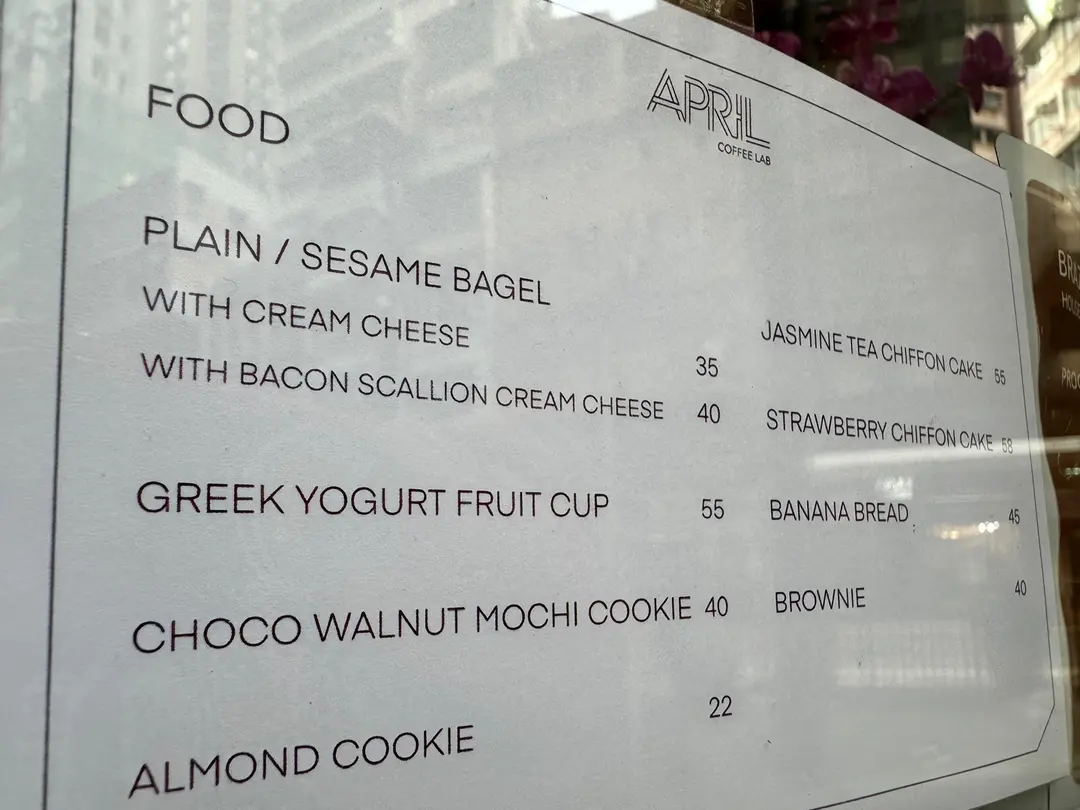 FOOD
APRIL
COFFEE LAB
PLAIN / SESAME BAGEL
WITH CREAM CHEESE 35
WITH BACON SCALLION CREAM CHEESE 40
GREEK YOGURT FRUIT CUP 55
CHOCO WALNUT MOCHI COOKIE 40
ALMOND COOKIE 22
JASMINE TEA CHIFFON CAKE 55
STRAWBERRY CHIFFON CAKE 58
BANANA BREAD 45
BROWNIE 40